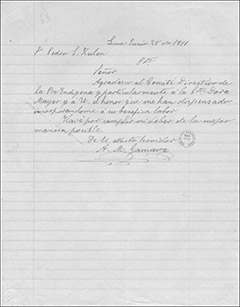 Lima Junio 25 de 1911
Sr. Pedro S. Zulen
Pte.
Señor
Agradezco al Comité Directivo de
la Pro-Indígena y particularmente á la Srta. Dora
Mayer y á U. el honor que me han dispensado
incorporándome á su benéfica labor
Haré por cumplir mi deber de la mejor
manera posible
De U. atento servidor
A. M. Gamarra